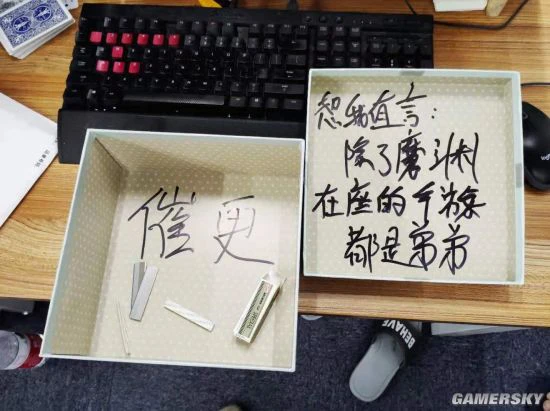 催更
恕我直言:
除了磨
在座的
都是弟弟
BEHAVE
GAMERSKY